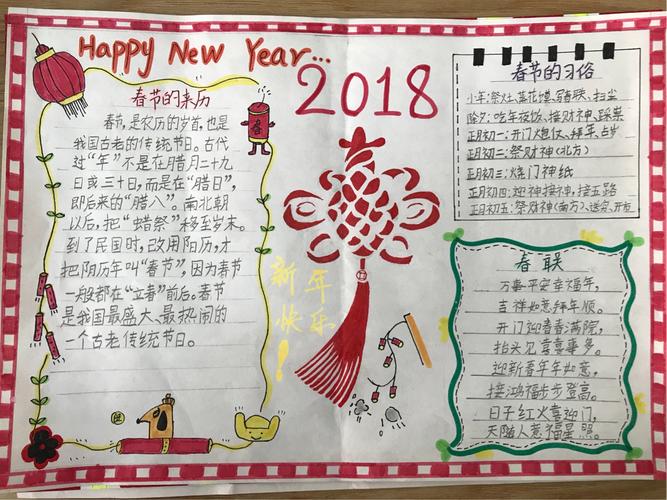 Happy New Year...
2018
春节的来历
春节,是农历的岁首,也是
我国古老的传统节日。古代
过“年”不是在腊月二十九
日或三十日,而是在“腊日”,
即后来的“腊八”。南北朝
以后,把“蜡祭”移至岁末。
到了民国时,改用阳历,才
把阴历年叫“春节”,因为春节
一般都在“立春”前后。春节
是我国最盛大、最热闹的
一个古老传统节日。
春
新年
快乐!
春节的习俗
小年:祭灶、蒸花馍、写春联、扫尘
除夕:吃年夜饭、接财神、踩祟
正月初一:开门炮仗、拜年、占岁
正月初二:祭财神(北方)
正月初三:烧门神纸
正月初四:迎神接神,接五路
正月初五:祭财神(南方)、送穷、开市
春联
万事平安幸福年,
吉祥如意拜年顺。
开门迎春春满院,
抬头见喜喜事多。
迎新春年年如意,
接鸿福步步登高。
日子红火喜迎门,
天随人意福星照。